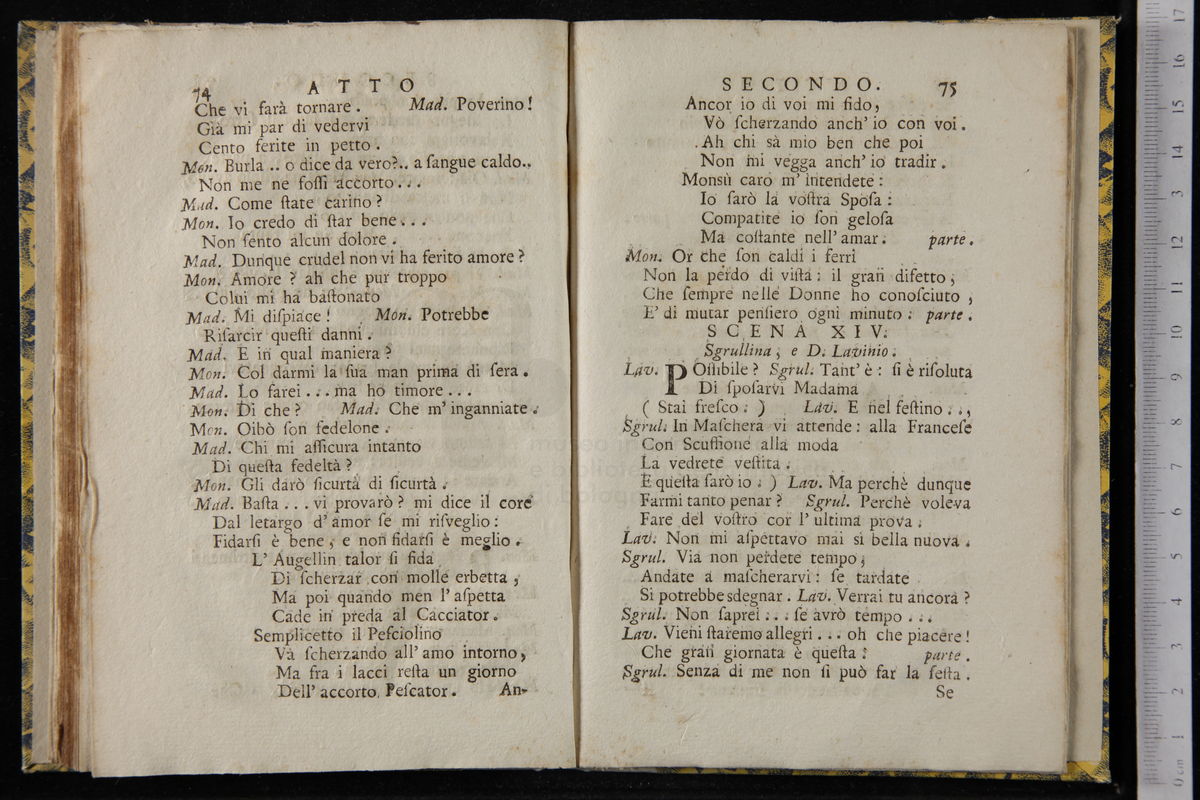 74 ATTO
Che vi farà tornare. Mad. Poverino!
Già mi par di vedervi
Cento ferite in petto.
Mon. Burla .. o dice da vero?.. a ſangue caldo..
Non me ne foſſi accorto...
Mad. Come ſtate carino?
Mon. Io credo di ſtar bene...
Non ſento alcun dolore.
Mad. Dunque crudel non vi ha ferito amore?
Mon. Amore? ah che pur troppo
Colui mi ha baſtonato
Mad. Mi diſpiace! Mon. Potrebbe
Riſarcir queſti danni.
Mad. E in qual maniera?
Mon. Col darmi la ſua man prima di ſera.
Mad. Lo farei... ma ho timore...
Mon. Di che? Mad. Che m' inganniate.
Mon. Oibò ſon fedelone.
Mad. Chi mi aſſicura intanto
Di queſta fedeltà?
Mon. Gli darò ſicurtà di ſicurtà.
Mad. Baſta ... vi provarò? mi dice il core
Dal letargo d' amor ſe mi riſveglio:
Fidarſi è bene, e non fidarſi è meglio.
L' Augellin talor ſi fida
Di ſcherzar con molle erbetta,
Ma poi quando men l' aſpetta
Cade in preda al Cacciator.
Semplicetto il Peſciolino
Và ſcherzando all' amo intorno,
Ma fra i lacci reſta un giorno
Dell' accorto Peſcator. An-
SECONDO. 75
Ancor io di voi mi fido,
Vò ſcherzando anch' io con voi.
Ah chi sà mio ben che poi
Non mi vegga anch' io tradir.
Monsù caro m' intendete:
Io ſarò la voſtra Spoſa:
Compatite io ſon geloſa
Ma coſtante nell' amar. parte.
Mon. Or che ſon caldi i ferri
Non la perdo di viſta: il gran difetto,
Che ſempre nelle Donne ho conoſciuto,
E' di mutar penſiero ogni minuto. parte.
SCENA XIV.
Sgrullina, e D. Lavinio.
Lav. POſſibile? Sgrul. Tant' è: ſi è riſoluta
Di ſpoſarvi Madama
( Stai freſco. ) Lav. E nel feſtino..,
Sgrul. In Maſchera vi attende: alla Franceſe
Con Scuffione alla moda
La vedrete veſtita.
E queſta ſarò io. ) Lav. Ma perchè dunque
Farmi tanto penar? Sgrul. Perchè voleva
Fare del voſtro cor l' ultima prova.
Lav. Non mi aſpettavo mai sì bella nuova.
Sgrul. Via non perdete tempo,
Andate a maſcherarvi: ſe tardate
Si potrebbe sdegnar. Lav. Verrai tu ancora?
Sgrul. Non ſaprei... ſe avrò tempo...
Lav. Vieni ſtaremo allegri... oh che piacere!
Che gran giornata è queſta! parte.
Sgrul. Senza di me non ſi può far la feſta.
Se